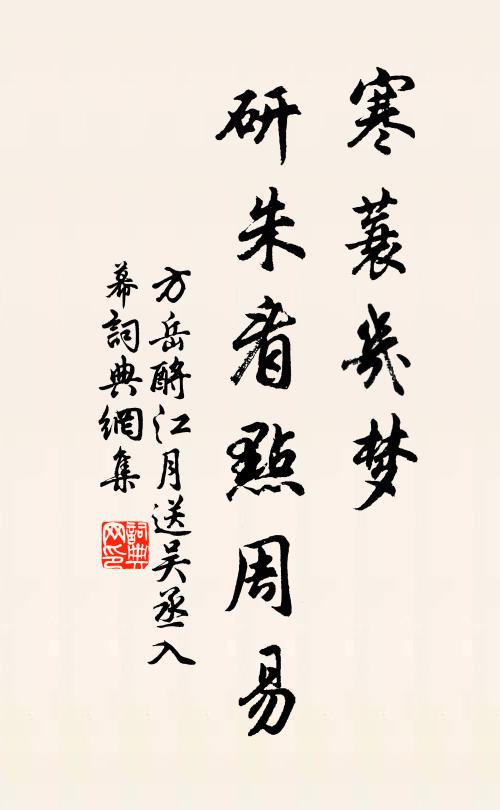 寒蓑幾梦
研朱看點周易
方岳酹江月送吴丞入
幕詞典網集
詞典网印